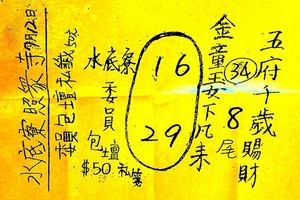 五府千歲賜財
34 8尾
金童玉女下凡来
16
29
水底寮 委員
包壇
$50 私簽
委員包壇私
水底寮照象 寺 9月12日